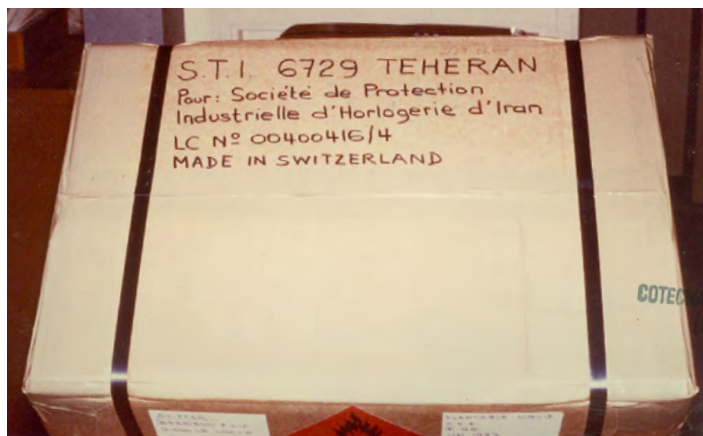 S.T.I. 6729 TEHERAN
Pour: Société de Protection
Industrielle d'Horlogerie d'Iran
LC Nº 00400416/4
MADE IN SWITZERLAND